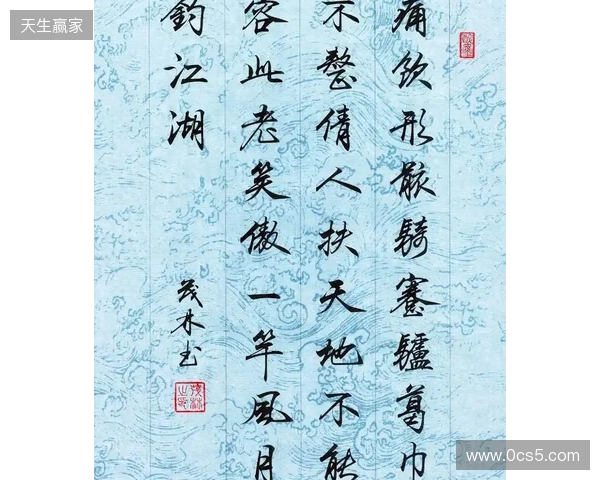 天生赢家
痛飲形骸騎蹇驢葛巾
不整倩人扶天地不能
容此老笑傲一竿風月
釣江湖
茂林书
www.0cs5.com